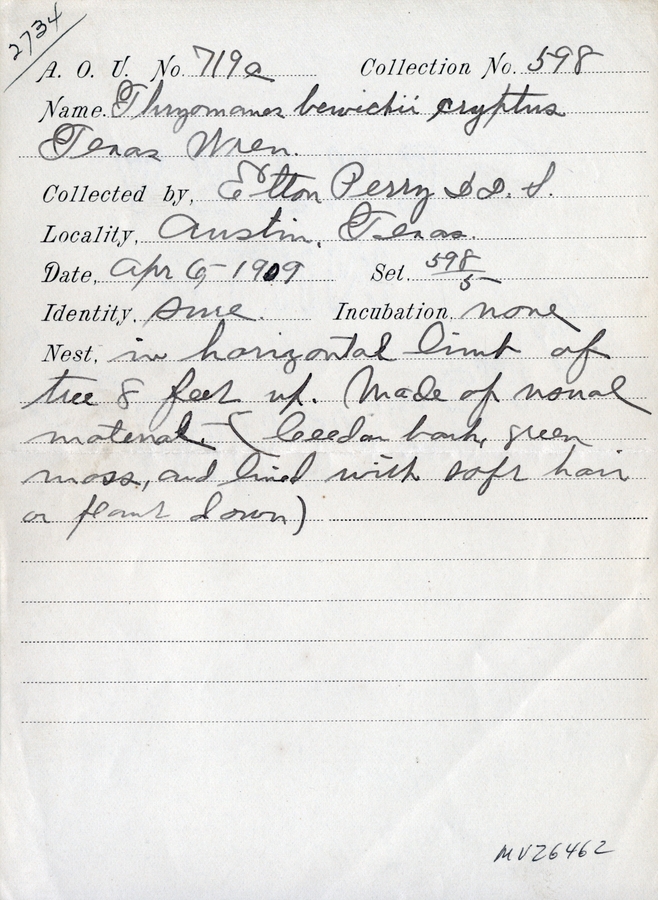 2734
A. O. U. No. 719a Collection No. 598
Name. Thryomanes bewickii cryptus
Texas Wren.
Collected by, Elton Perry D.D.S.
Locality, Austin, Texas.
Date, Apr 6, 1909 Set. 598/5
Identity, sure. Incubation, none
Nest, in horizontal limb of
tree 8 feet up. Made of usual
material. (Ceedar bark, green
moss, and lined with soft hair
or plant down)
MVZ6462